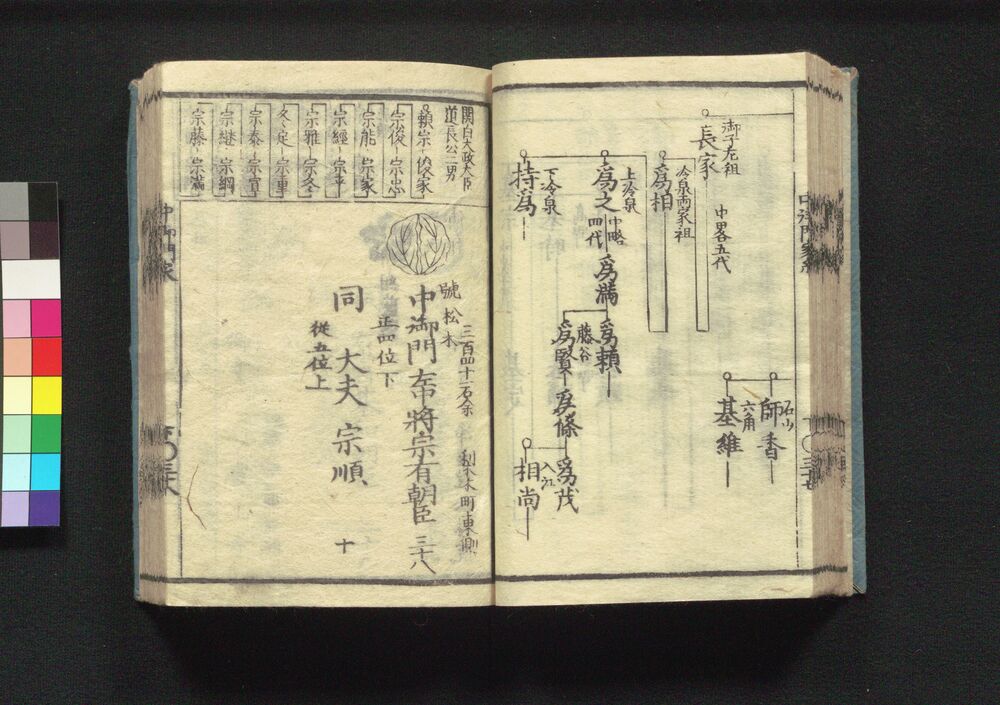 御子左祖
長家
中畧五代
冷泉両家祖
為相
上冷泉
為之
中略
四代
為満
為頼
藤谷
為賢
為條
為茂
入江
相尚
下冷泉
持為
石山
師香
六角
基維
三十七
関白太政大臣
道長公二男
頼宗 俊家
宗俊 宗忠
宗能 宗家
宗經 宗平
宗雅 宗冬
冬定 宗重
宗泰 宗宣
宗継 宗綱
宗藤 宗満
三百四十一石余
梨木町東側
號松木
中御門 中将宗有朝臣 三十八
正四位下
同 大夫 宗順 十
従五位上
中御門家
三十八